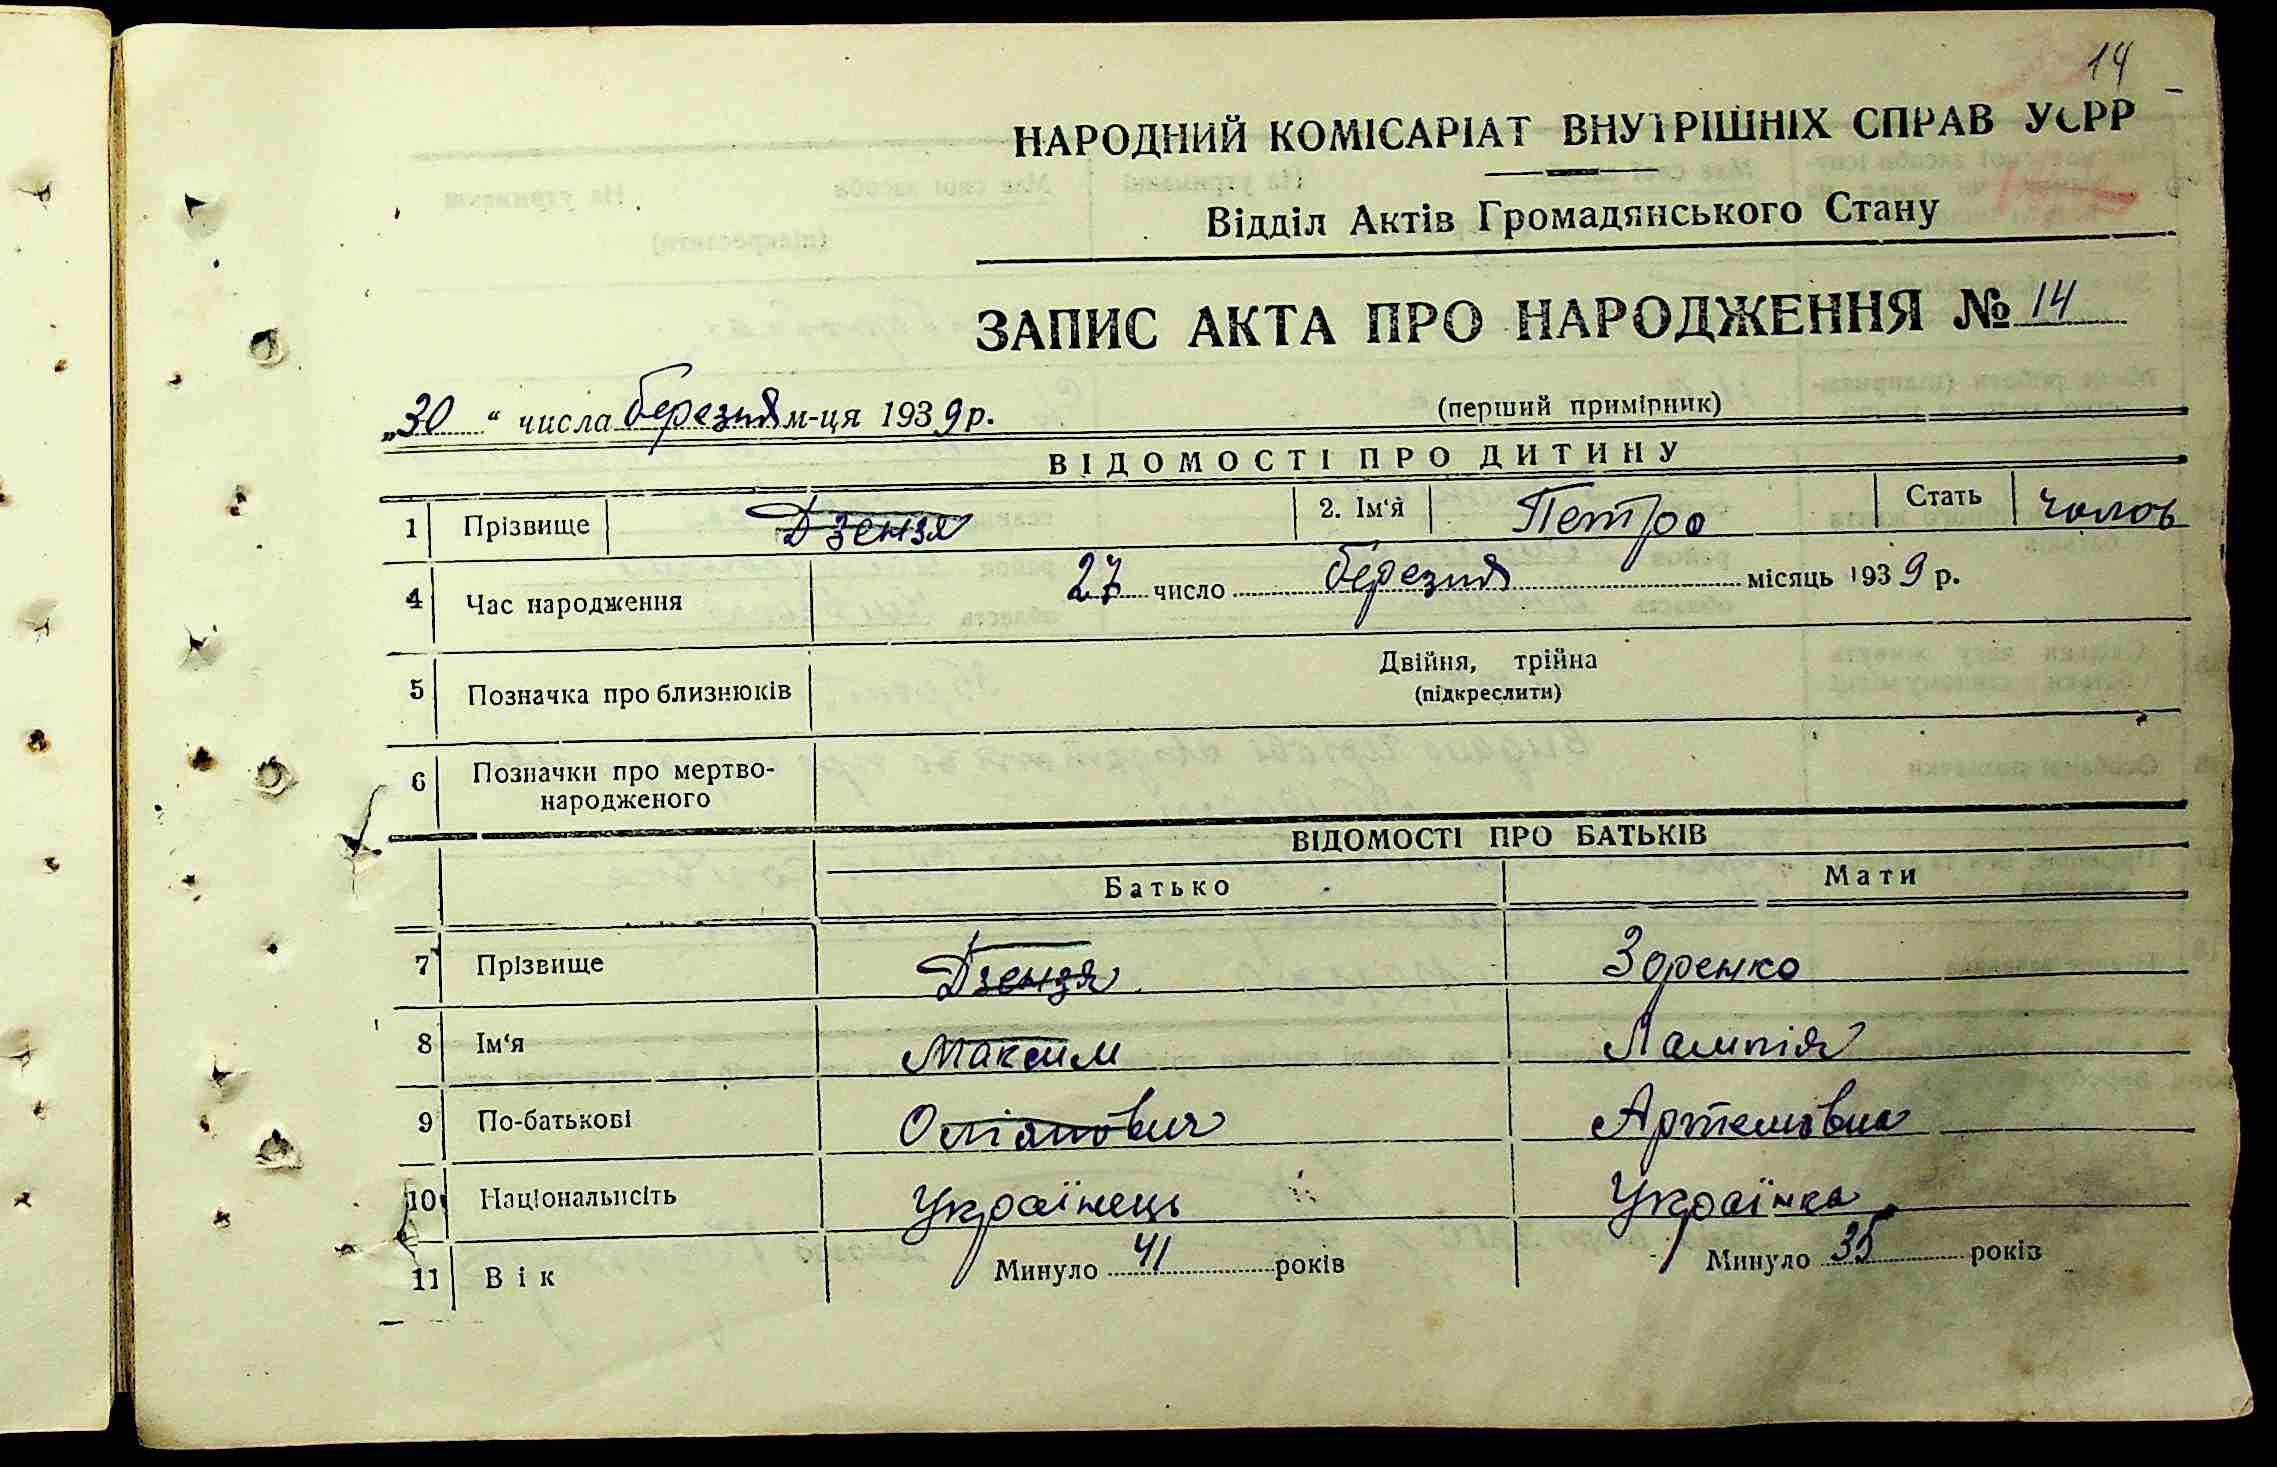 14
НАРОДНИЙ КОМІСАРІАТ ВНУТРІШНІХ СПРАВ УСРР
Відділ Актів Громадянського Стану
ЗАПИС АКТА ПРО НАРОДЖЕННЯ № 14
„30“ числа березня м-ця 1939 р. (перший примірник)
ВІДОМОСТІ ПРО ДИТИНУ
1 Прізвище Дзензя 2. Ім'я Петро Стать чолов
4 Час народження 27 число березня місяць 1939 р.
5 Позначка про близнюків Двійня, трійна
(підкреслити)
6 Позначки про мертво-
народженого
ВІДОМОСТІ ПРО БАТЬКІВ
Батько Мати
7 Прізвище Дзензя Зоренко
8 Ім'я Максим Лампія
9 По-батькові Артемовна
10 Національність Українець Українка
11 Вік Минуло 41 років Минуло 35 років